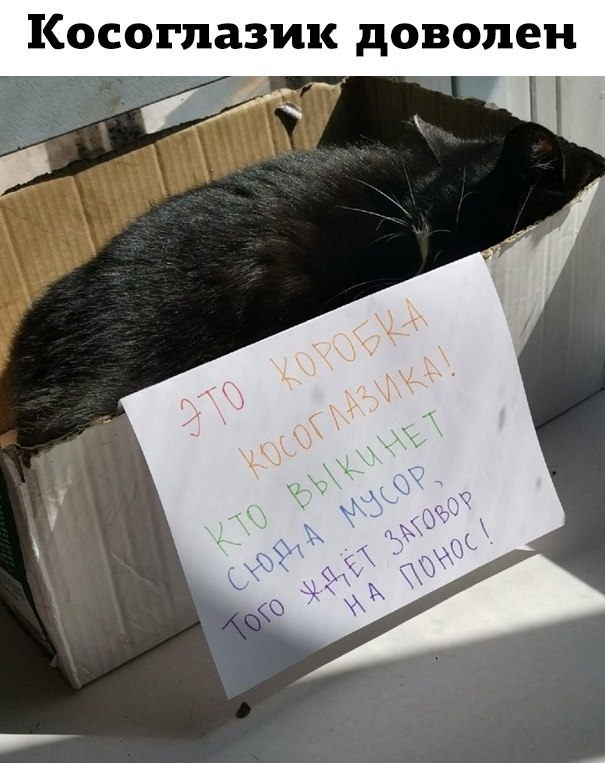 Косоглазик доволен
ЭТО КОРОБКА
КОСОГЛАЗИКА!
КТО ВЫКИНЕТ
СЮДА МУСОР,
ТОГО ЖДЁТ ЗАГОВОР
НА ПОНОС!